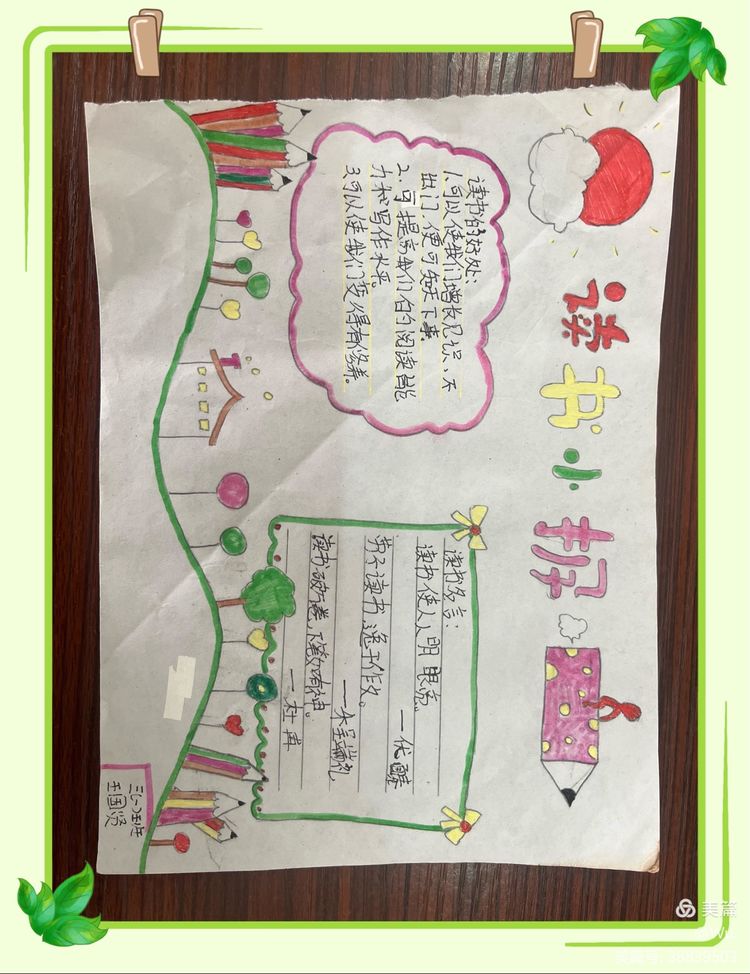 读书小报
读书的好处:
1.可以使我们增长见识、不
出门、便可知天下事
2.可提高我们的阅读能
力和写作水平。
3可以使我们变得有修养。
读书名言:
读书使人人明眼亮。
—伏
劳于读书逸于作文。
—程端礼
读书破万卷下笔如有神。
—杜甫
三(2)班
王国贤
美篇